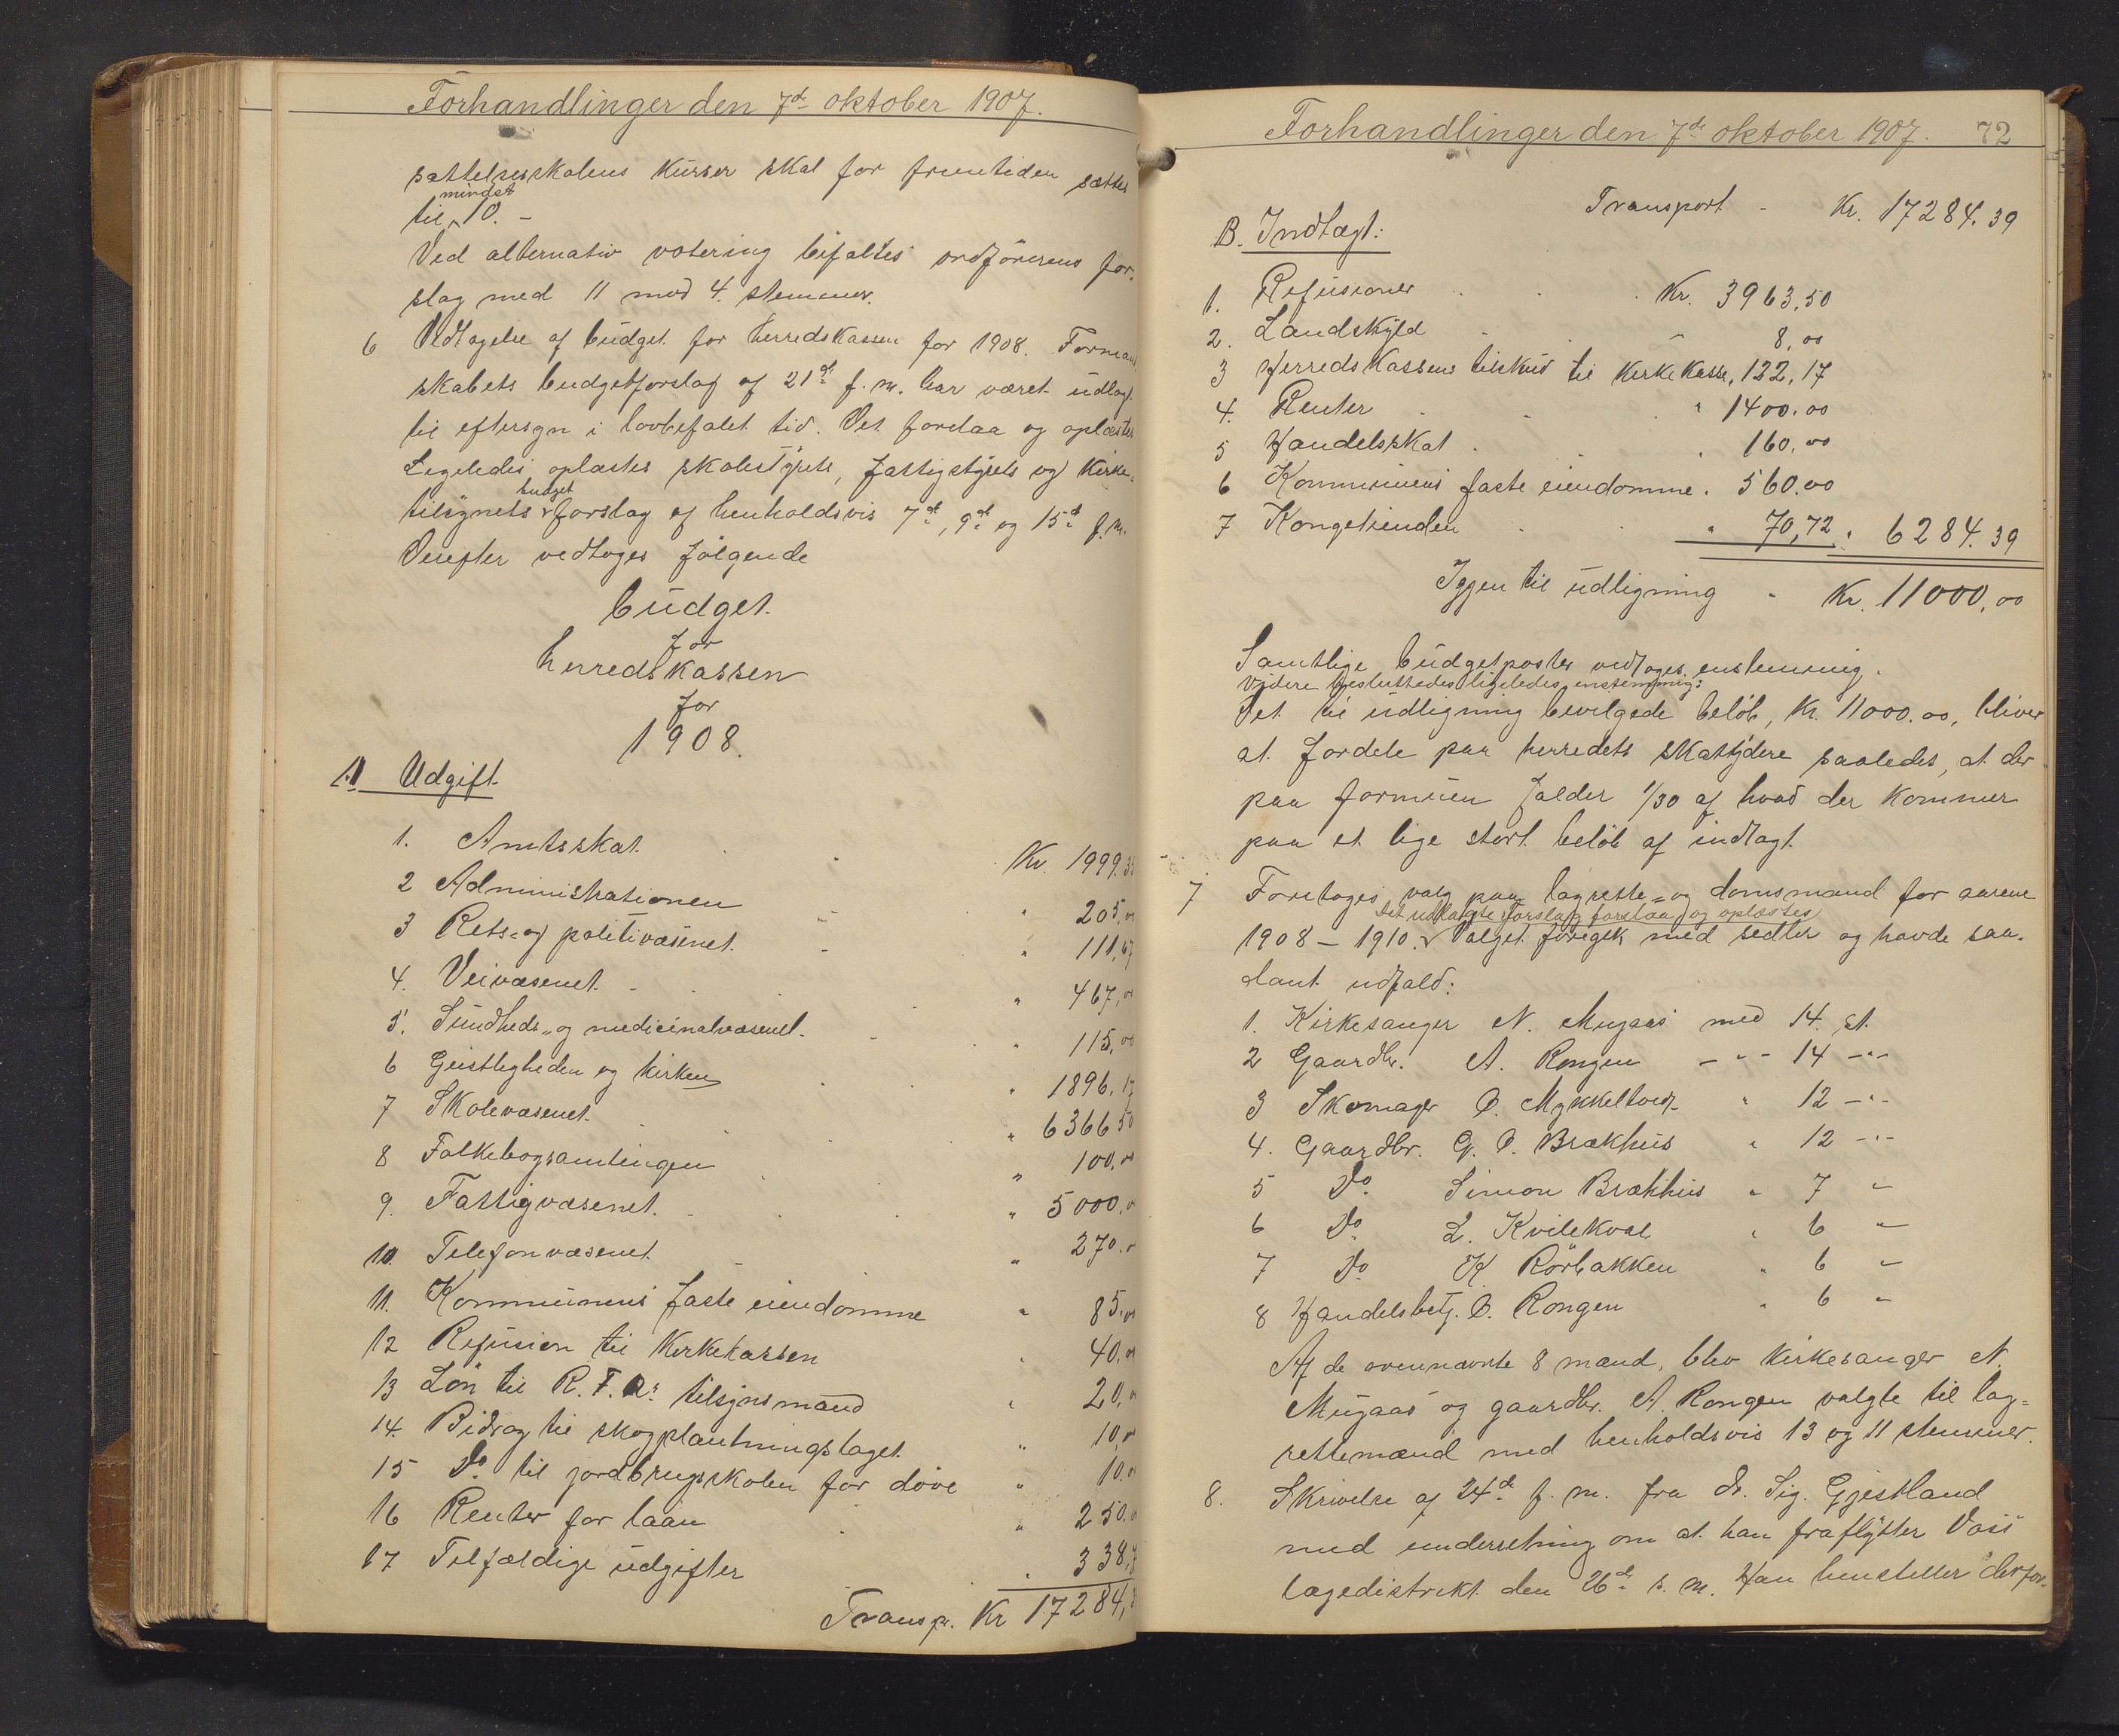 Forhandlinger den 7de oktober 1907.
sættelsesskolens kurser skal for fremtiden sættes
mindst
til 10. –
Ved alternativ votering bifaltes ordförerens for-
slag med 11 mod 4. stemmer.
6 Vedtagelse af budget for herredskassen for 1908. Formand
skabets budgetforslag af 21de f. m. har været udlagt
til eftersyn i lovbefalet tid. Det forelaa og oplæstes
Ligeledes oplæstes skolestyrets, fattigstyrets og kirke-
budget
tilsynets forslag af henholdsvis 7de, 9de og 15de f. m.
Derefter vedtoges følgende
Budget
for
herredskassen
for
1908.
A Udgift
1. Amtsskat Kr. 1999.35
2 Administrationen " 205,00
3 Rets- og politivæsenet " 111,67
4. Veivæsenet " 467,00
5. Sundheds- og medicinalvæsenet " 115,00
6 Geistligheden og kirken " 1896,17
7 Skolevæsenet " 6366 50
8 Folkebogsamlingen " 100,00
9. Fattigvæsenet " 5000,00
10. Telefonvæsenet " 270.00
11. Kommunens faste eiendomme " 85,00
12 Refusion til Kirkekassen " 40,00
13 Løn til R. F. As tilsynsmand " 20,00
14. Bidrag til skogplantningslaget " 10,00
15 Do til jordbrugsskolen for døve " 10.00
16 Renter for laan " 250.00
17 Tilfældige udgifter " 338,
Transp. Kr 17284,
Forhandlinger den 7de oktober 1907. 72
Transport - Kr. 17284.39
B. Indtægt:
1. Refusioner Kr. 3963,50
2. Landskyld " 8,00
3 Herredskassens tilskud til kirkekasse, 122,17
4. Renter " 1400.00
5 Handelsskat " 160,00
6 Kommunens faste eiendomme . 560.00
7 Kongetienden " 70,72 " 6284.39
Igjen til udligning - Kr. 11000,00
Samtlige budgetposter vedtoges enstemmig.
Videre besluttedes ligeledes enstemmig:
Det til udligning bevilgede beløb, Kr. 11000.00, bliver
at fordele paa herredets skatydere saaledes, at der
paa formuen falder 1/30 af hvad der kommer
paa et lige stort beløb af indtægt.
7 Foretoges valg paa lagrette- og domsmænd for aarene
Det udlagte forslag forelaa og oplæstes
1908 – 1910. Valget foregik med sedler og havde saa-
dant udfald:
1. Kirkesanger N. Mugaas med 14. st.
2 Gaardbr. A. Rongen – " – 14 – " –
3 Skomager O. Mykkeltvedt " 12 – " –
4. Gaardbr. G. O. Brækhus " 12 – " –
5 Do Simon Brækhus " 7 "
6 Do L. Kvilekval " 6 "
7 Do K Rörbakken " 6 "
8 Handelsbetj. O. Rongen " 6 "
Af de ovennævnte 8 mænd, blev kirkesanger N.
Mugaas og gaardbr. A. Rongen valgte til lag-
rettemænd med henholdsvis 13 og 11 stemmer.
8. Skrivelse af 24de f. m. fra dr. Sig. Gjestland
med underretning om at han fraflytter Voss
lægedistrikt den 26de d. m. Han henstiller derfor